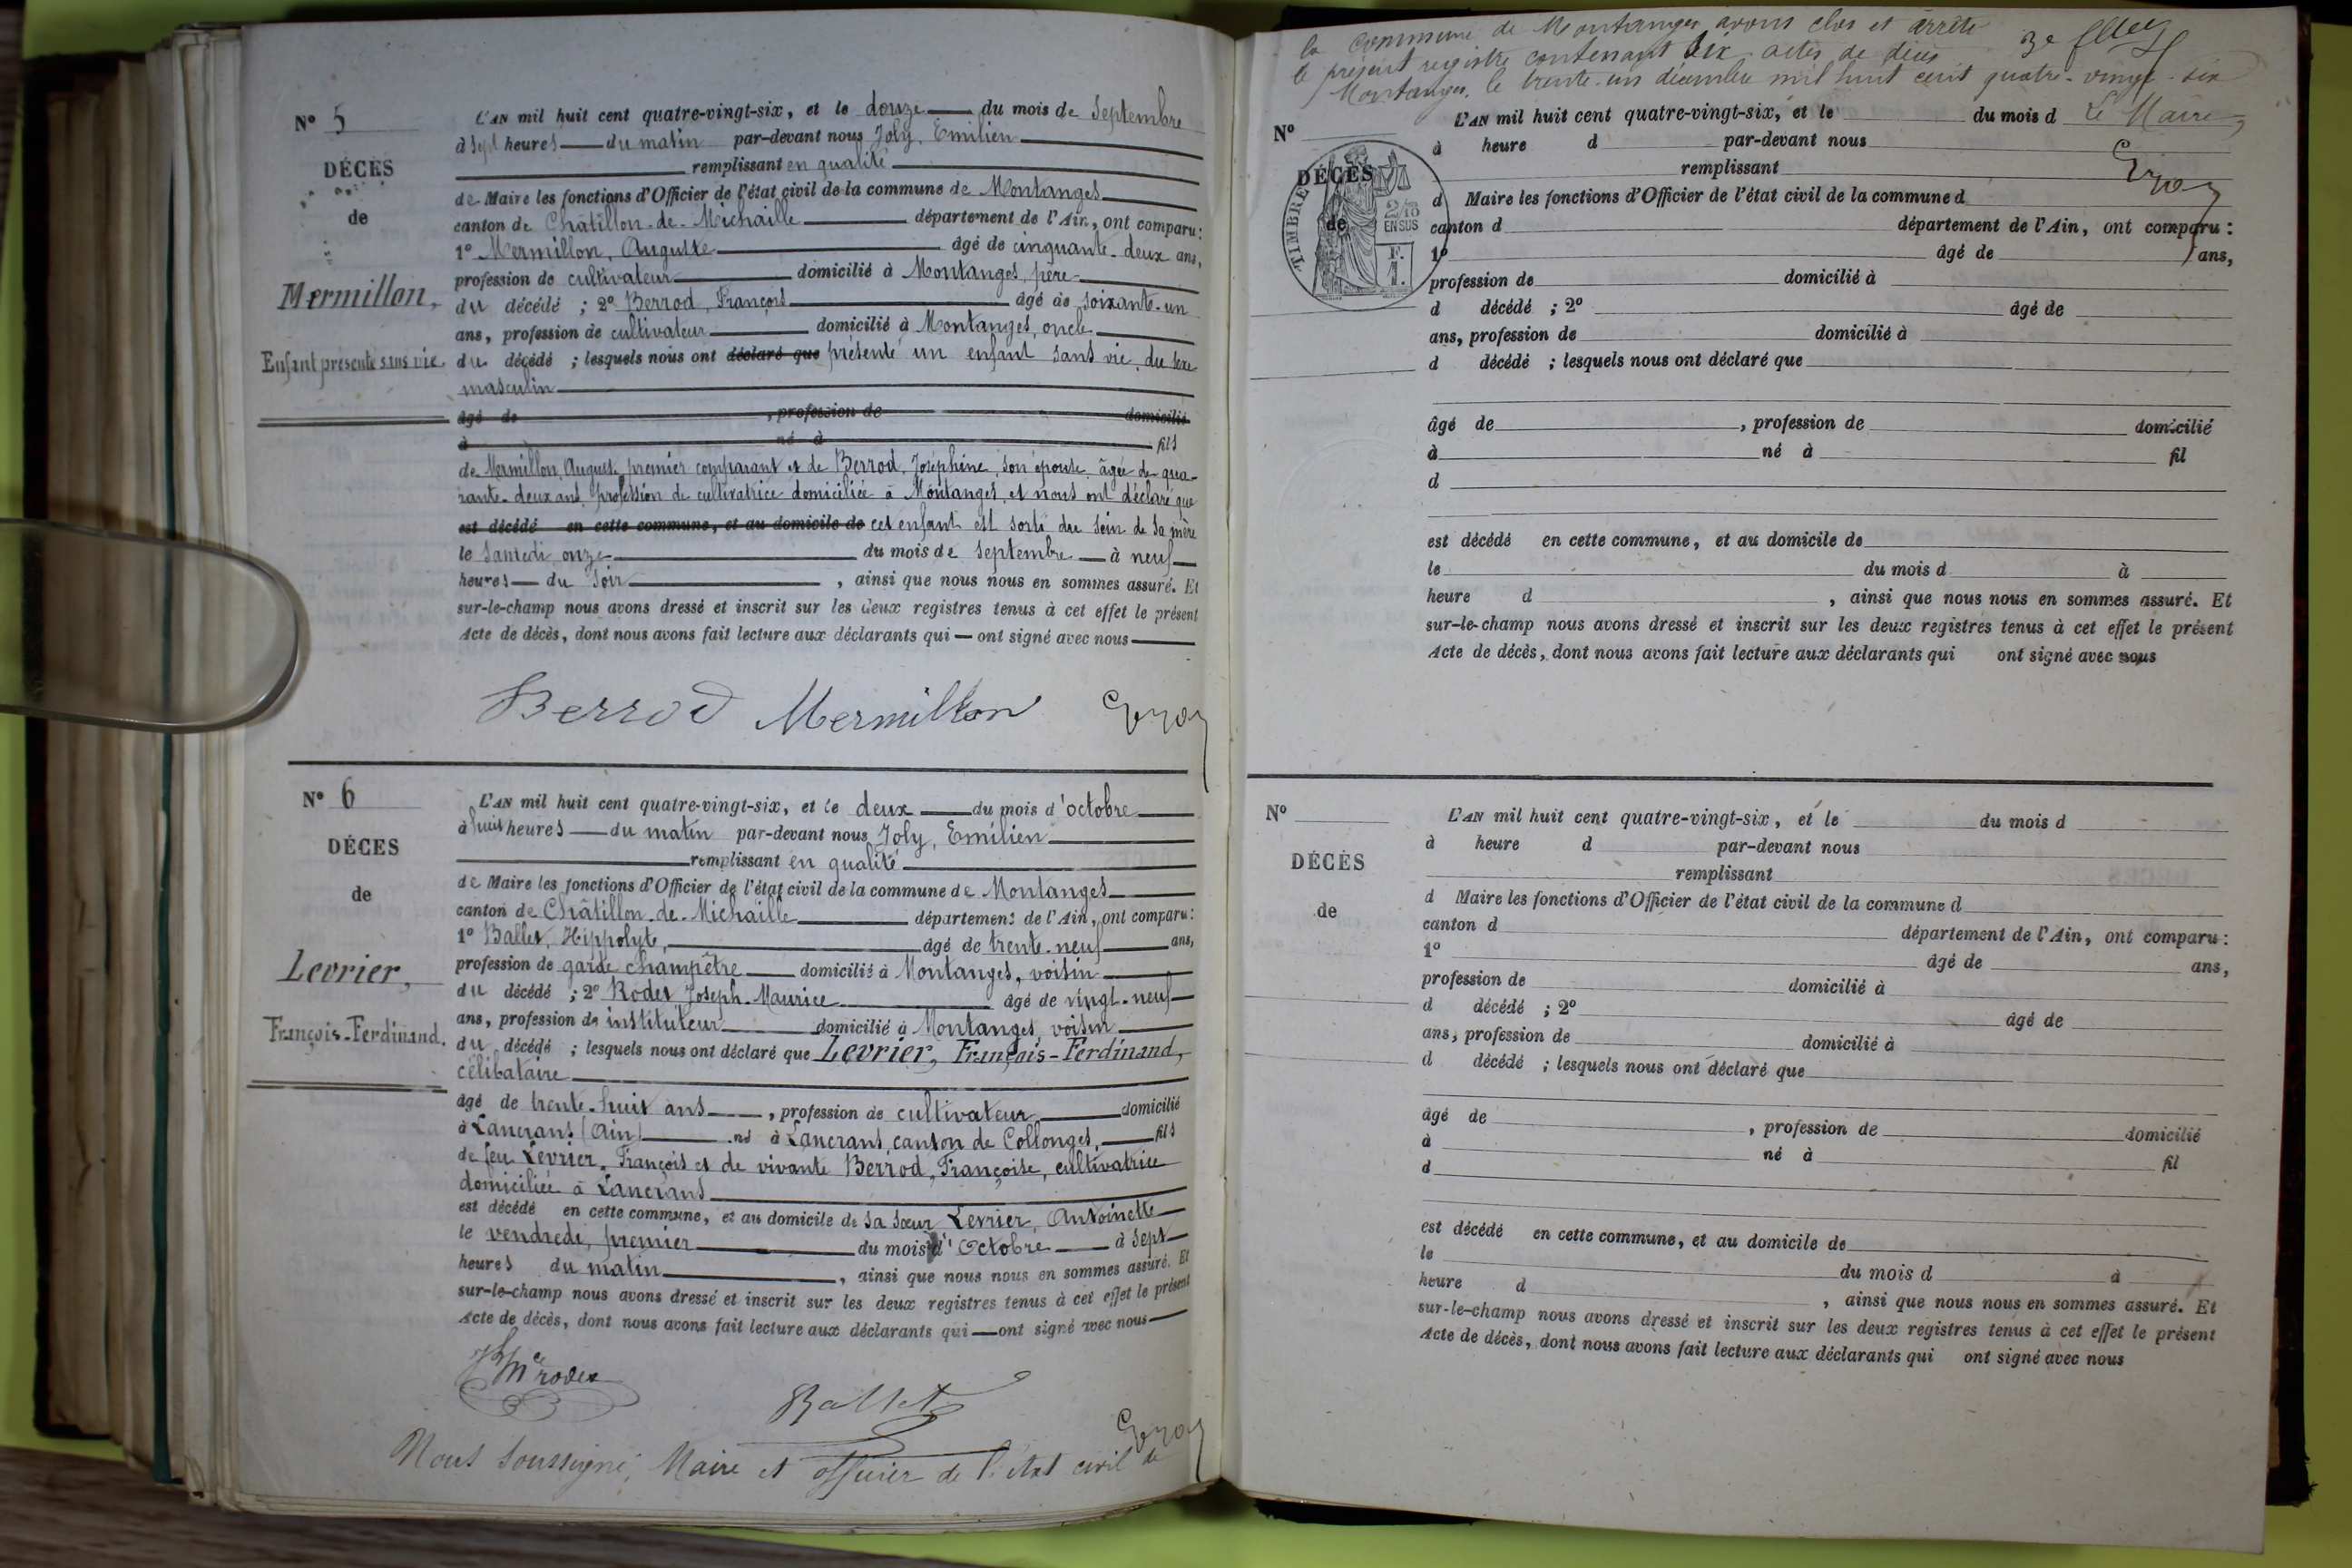 Nº 5
DÉCÈS
de
Mermillon,
Enfant présenté sans vie.
L'AN mil huit cent quatre-vingt-six, et le douze du mois de Septembre
à sept heures du matin par-devant nous Joly, Emilien
remplissant en qualité
de Maire les fonctions d'Officier de l'état civil de la commune de Montanges
canton de Châtillon-de-Michaille département de l'Ain, ont comparu :
1º Mermillon, Auguste âgé de cinquante-deux ans,
profession de cultivateur domicilié à Montanges, père
du décédé ; 2º Berrod, François âgé de soixante-un
ans, profession de cultivateur domicilié à Montanges, oncle
du décédé ; lesquels nous ont déclaré que présenté un enfant sans vie, du sexe
masculin
âgé de , profession de domicilié
à né à fils
de Mermillon Auguste, premier comparant et de Berrod, Joséphine, son épouse, âgée de qua-
rante-deux ans, profession de cultivatrice domiciliée à Montanges, et nous ont déclaré que
est décédé en cette commune, et au domicile de cet enfant est sorti du sein de sa mère
le samedi onze du mois de septembre à neuf
heures du soir , ainsi que nous nous en sommes assuré. Et
sur-le-champ nous avons dressé et inscrit sur les deux registres tenus à cet effet le présent
Acte de décès, dont nous avons fait lecture aux déclarants qui ont signé avec nous
Berrod Mermillon
Nº 6
DÉCES
de
Levrier,
François-Ferdinand.
L'AN mil huit cent quatre-vingt-six, et le deux du mois d'octobre
à huit heures du matin par-devant nous Joly, Emilien
remplissant en qualité
de Maire les fonctions d'Officier de l'état civil de la commune de Montanges
canton de Châtillon-de-Michaille département de l'Ain, ont comparu :
1º Ballet, Hippolyte, âgé de trente-neuf ans,
profession de garde champêtre domicilié à Montanges, voisin
du décédé ; 2º Rodet Joseph-Maurice âgé de vingt-neuf
ans, profession de instituteur domicilié à Montanges, voisin
du décédé ; lesquels nous ont déclaré que Levrier, François-Ferdinand,
célibataire
âgé de trente-huit ans , profession de cultivateur domicilié
à Lancrans (Ain) né à Lancrans, canton de Collonges, fils
de feu Levrier, François et de vivante Berrod, Françoise, cultivatrice
domiciliée à Lancrans
est décédé en cette commune, et au domicile de sa sœur Levrier, Antoinette
le vendredi, premier du mois d'Octobre à sept
heures du matin , ainsi que nous nous en sommes assuré. Et
sur-le-champ nous avons dressé et inscrit sur les deux registres tenus à cet effet le présent
Acte de décès, dont nous avons fait lecture aux déclarants qui ont signé avec nous
Ballet
Nous soussigné, Maire et officier de l'état civil de
la commune de Montanges avons clos et arrêté
le présent registre contenant six actes de décès
Montanges, le trente-un décembre mil huit cent quatre-vingt-six
3e
Le Maire,
Nº
DÉCÈS
de
TIMBRE
2/10
EN SUS
F.
1.
L'AN mil huit cent quatre-vingt-six, et le du mois d
à heure d par-devant nous
remplissant
d Maire les fonctions d'Officier de l'état civil de la commune d
canton d département de l'Ain, ont comparu :
1º âgé de ans,
profession de domicilié à
d décédé ; 2º âgé de
ans, profession de domicilié à
d décédé ; lesquels nous ont déclaré que
âgé de , profession de domicilié
à né à fil
d
est décédé en cette commune, et au domicile de
le du mois d à
heure d , ainsi que nous nous en sommes assuré. Et
sur-le-champ nous avons dressé et inscrit sur les deux registres tenus à cet effet le présent
Acte de décès, dont nous avons fait lecture aux déclarants qui ont signé avec nous
Nº
DÉCÈS
de
L'AN mil huit cent quatre-vingt-six, et le du mois d
à heure d par-devant nous
remplissant
d Maire les fonctions d'Officier de l'état civil de la commune d
canton d département de l'Ain, ont comparu :
1º âgé de ans,
profession de domicilié à
d décédé ; 2º âgé de
ans, profession de domicilié à
d décédé ; lesquels nous ont déclaré que
âgé de , profession de domicilié
à né à fil
d
est décédé en cette commune, et au domicile de
le du mois d à
heure d , ainsi que nous nous en sommes assuré. Et
sur-le-champ nous avons dressé et inscrit sur les deux registres tenus à cet effet le présent
Acte de décès, dont nous avons fait lecture aux déclarants qui ont signé avec nous